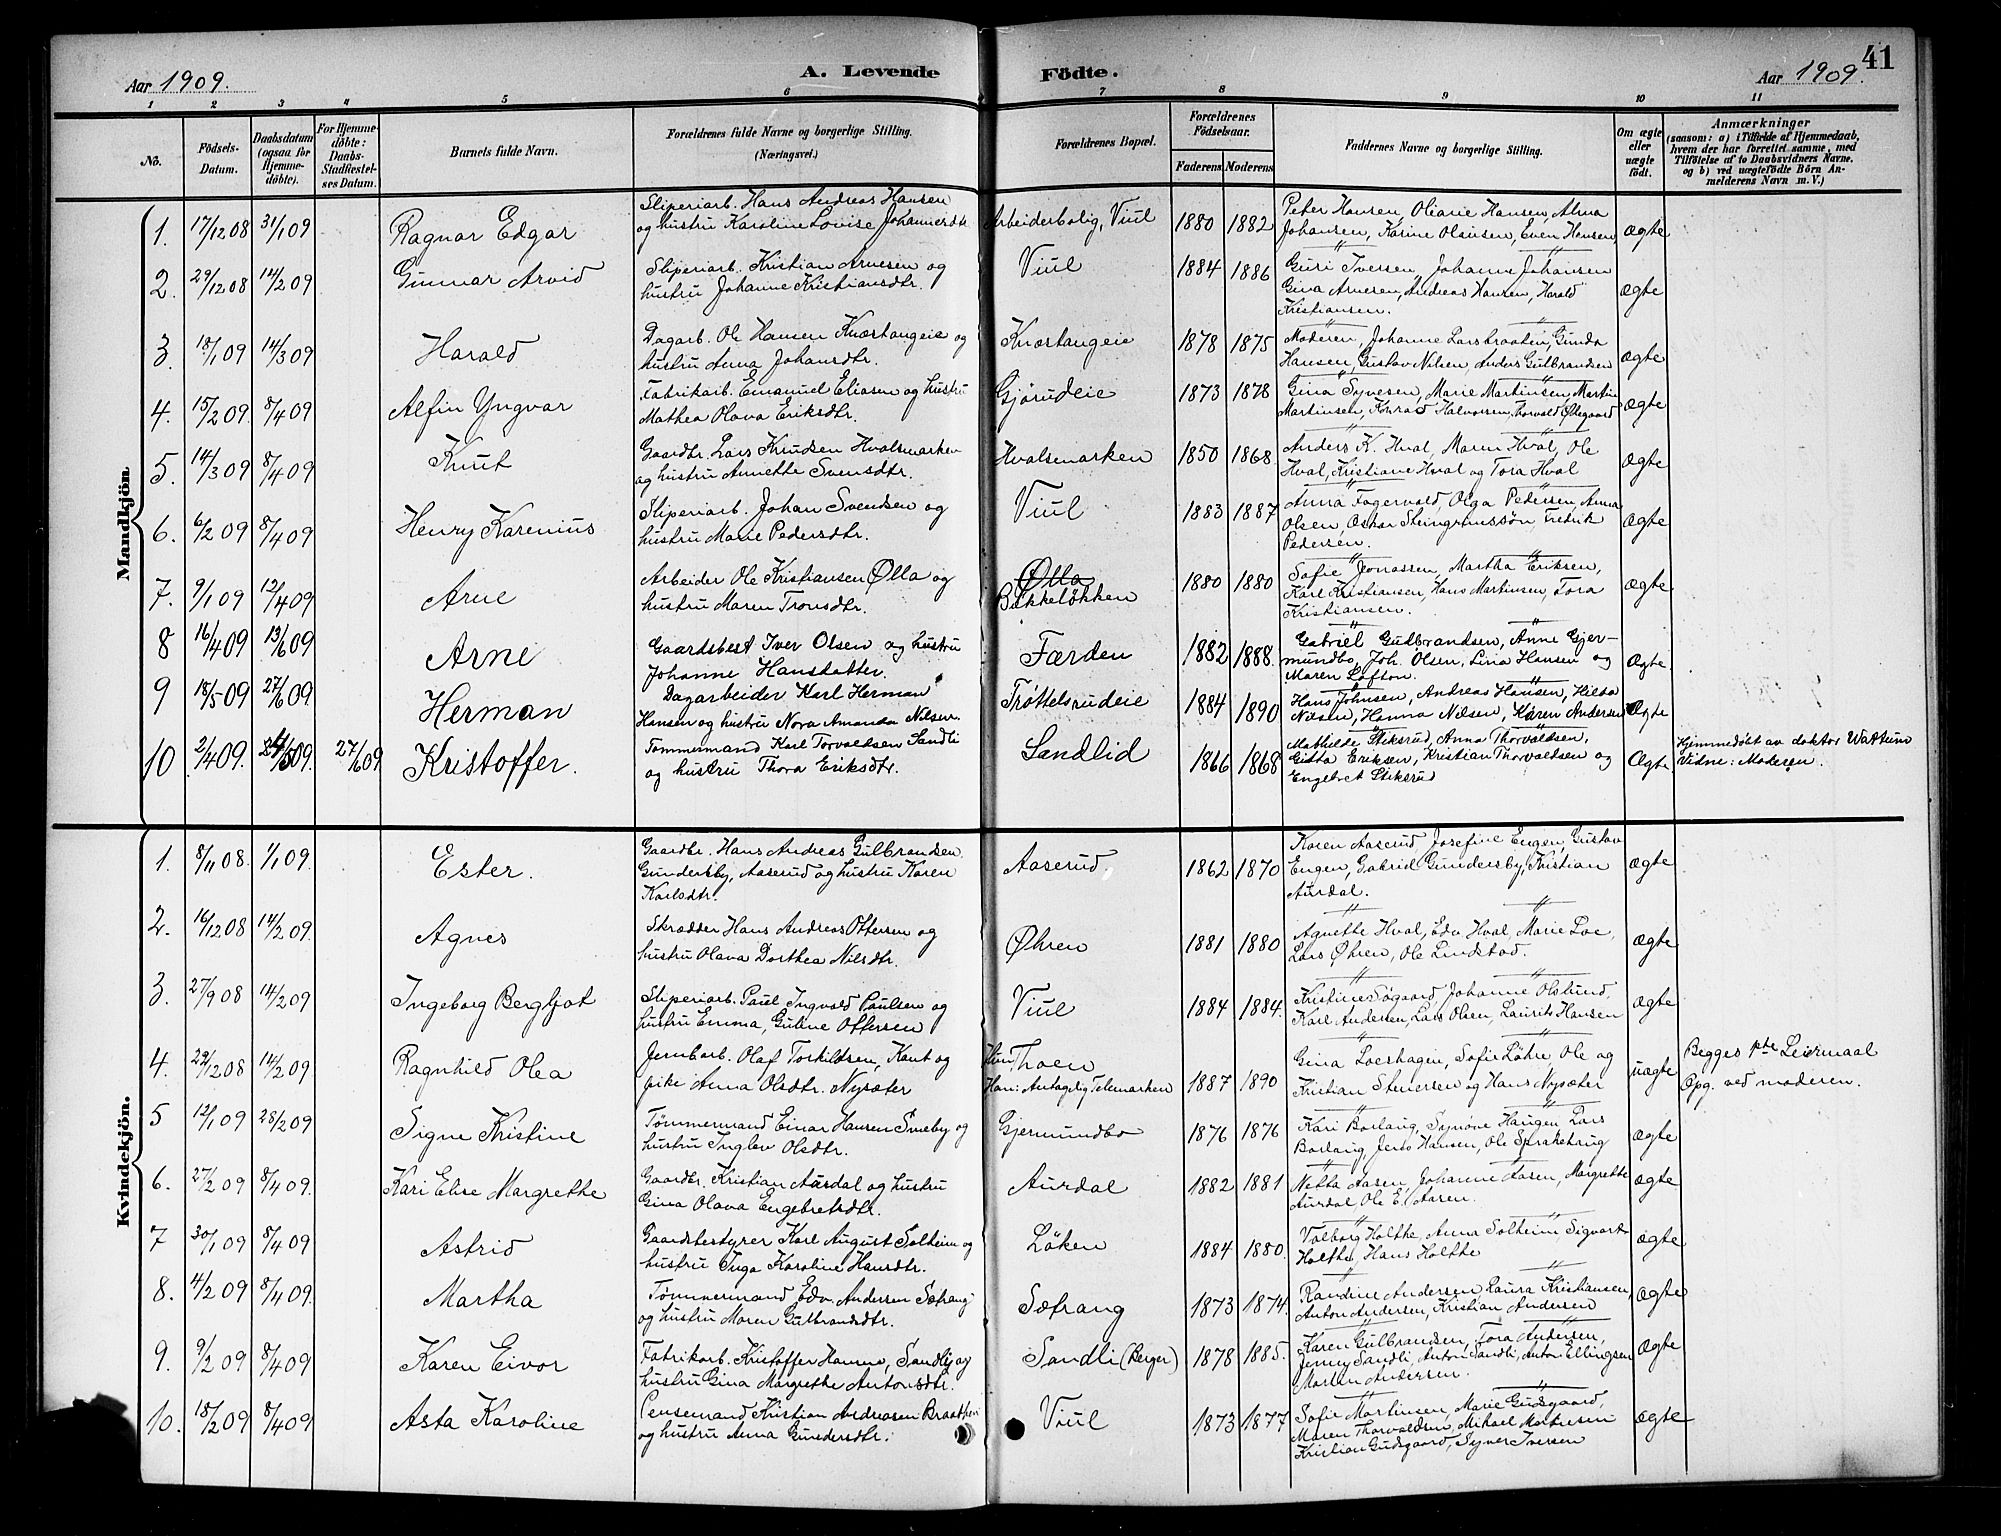 41
Aar 1909.
A. Levende Födte.
Aar 1909.
1 2 3 4 5 6 7 8 9 10 11
No.
Födsels-Datum.
Daabsdatum (ogsaa for Hjemmedöbte).
For Hjemmedöbte: Daabs-Stadfæstelses Datum.
Barnets fulde Navn.
Forældrenes fulde Navne og borgerlige Stilling. (Næringsvei.)
Forældrenes Bopæl.
Forældrenes Födselsaar.
Faderens Moderens
Faddernes Navne og borgerlige Stilling.
Om ægte eller uægte födt.
Anmærkninger
(saasom: a) i Tilfælde af Hjemmedaab, hvem der har forrettet samme, med Tilföielse af to Daabsvidners Navne, og b) ved uægtefödte Börn Anmelderens Navn m. V.)
Mandkjön.
1. 17/12 08 31/1 09 Ragnar Edgar
Sliperiarb. Hans Andreas Hansen
og hustru Karoline Lovise Johannesdtr.
Arbeiderbolig, Viul 1880 1882
Peter Hansen, Oleane Hansen, Alma
Johansen, Karine Olsen, Even Hansen
ægte
2. 29/12 08 14/2 09 Gunnar Arvid
Sliperiarb. Kristian Arnesen og
hustru Johanne Kristiansdtr.
Viul 1884 1886
Guri Iversen, Johanne Johansen
Gina Arnesen, Andreas Hansen, Harald
Kristiansen.
ægte
3. 18/1 09 14/3 09 Harald
Dagarb. Ole Hansen Knæstangeie og
hustru Anna Johansdtr.
Knæstangeie 1878 1875
Moderen, Johanne Larsbraaten, Gunda
Hansen, Gustav Nilsen, Anders Gulbrandsen
ægte
4. 15/2 09. 8/4 09 Alfin Yngvar
Fabrikarb. Emanuel Eliasen og hustru
Mathea Olava Eriksdtr.
Gjørudeie 1873 1878
Gina Syvesen, Marie Martinsen, Martin
Martinsen, Konrad Halvorsen, Thorvald Ødegaard
ægte
5. 14/3 09 8/4 09 Knut
Gaardbr. Lars Knudsen Hvalsmarken
og hustru Annette Svensdtr.
Hvalsmarken 1850 1868
Anders K. Hval, Maren Hval, Ole
Hval, Kristiane Hval og Tora Hval
ægte
6. 6/2 09 8/4 09 Henry Karenius
Sliperiarb. Johan Svendsen og
hustru Marie Pedersdtr.
Viul 1883 1887
Anna Fagervold, Olga Pedersen, Anna
Olsen, Oskar Steingrimssøn, Fredrik
Pedersen.
ægte
7. 9/1 09 12/4 09 Arne
Arbeider Ole Kristiansen Ølla og
hustru Maren Tronsdtr.
Ølla
Bakkeløkken 1880 1880
Sofie Jonassen, Martha Eriksen,
Karl Kristiansen, Hans Martinsen, Tora
Kristiansen.
ægte
8 16/4 09 13/6 09 Arne
Gaardsbest Iver Olsen og hustru
Johanne Hansdatter.
Færden 1882 1888.
Gabriel Gulbrandsen, Anne Gjer-
mundbo, Joh. Olsen, Lina Hansen og
Maren Lofton.
Ægte
9 18/5 09 27/6 09 Herman
Dagarbeider Karl Herman
Hansen og hustru Nora Amanda Nilsen.
Trøttelsrudeie 1884 1890
Hans Johnsen, Andreas Hansen, Hilda
Nilsen, Hanna Nilsen, Karen Andersen
Ægte
10 2/4 09. 24/5 09. 27/6 09 Kristoffer.
Tømmermand Karl Torvaldsen Sandli
og hustru Thora Eriksdtr.
Sandlid 1866 1868
Mathilde Stiksrud, Anna Thorvaldsen,
Gitta Eriksen, Kristian Thorvaldsen og
Engebret Stiksrud
Ægte.
Hjemmedøbt av doktor Wattum
Vidne: Moderen.
Kvindekjön.
1. 8/11 08. 1/1 09. Ester.
Gaardbr. Hans Andreas Gulbrandsen
Gundersby, Aaserud og hustru Karen
Karlsdtr.
Aaserud 1862 1870
Karen Aaserud, Josefine Engen, Gustav
Engen, Gabriel Gundersby, Kristian
Aurdal.
ægte
2. 16/12 08 14/2 09. Agnes
Skrædder Hans Andreas Ottersen og
hustru Olava Dorthea Nilsdtr.
Øhren 1881 1880
Agnette Hval, Edv. Hval, Marie Loe,
Lars Øhren, Ole Lindstad.
ægte
3. 27/9 08 14/2 09 Ingeborg Bergljot
Sliperiarb. Paul Ingvald Paulsen og
hustru Emma, Guline Ottersen
Viul 1884 1884.
Kristine Søgaard, Johanne Olslund,
Karl Andersen, Lars Olsen, Laurits Hansen
ægte
4. 29/12 08 14/2 09 Ragnhild Olea
Jernbarb. Olaf Torkildsen, Kant og
pike Anna Olsdtr. Nysæter
Hun Thoen
Han: Antagelig Telemarken 1887 1890
Gina Loeshagen, Sofie Løhre, Ole og
Kristian Stenersen og Hans Nysæter
uægte
Begges 1ste Leiermaal
Opg. ved moderen.
5 12/1 09 28/2 09 Signe Kristine
Tømmermand Einar Hansen Smeby og
hustru Inglev Olsdtr.
Gjermundbo 1876 1876
Kari Borlaug, Synøve Haugen, Lars
Borlaug, Jens Hansen, Ole Sprakehaug
ægte
6. 27/2 09 8/4 09. Kari Elise Margrethe
Gaardbr. Kristian Aurdal og hustru
Gina Olava Engebretsdtr.
Aurdal 1882 1881
Netta Aasen, Johanne Aasen, Margrethe
Aurdal, Ole E. Aasen.
ægte
7 30/1 09 8/4 09 Astrid
Gaardsbestyrer Karl August Solheim og
hustru Inga Karoline Hansdtr.
Løken 1884 1880.
Valborg Holthe, Anna Solheim, Sigvart
Holthe, Hans Holthe
ægte
8. 4/2 09 8/4 09. Martha
Tømmermand Edv. Andersen Sætrang
og hustru Maren Gulbrandsdtr.
Sætrang 1873 1874.
Randine Andersen, Laura Kristiansen,
Anton Andersen, Kristian Andersen
ægte
9. 9/2 09 8/4 09 Karen Eivor
Fabrikarb. Kristoffer Hanno, Sandli og
hustru Gina Margrethe Antonsdtr.
Sandli (Berger) 1878 1885.
Karen Gulbrandsen, Tora Andersen,
Jenny Sandli, Anton Sandli, Anton Ellingsen
Martin Andersen.
ægte
10. 18/2 09 8/4 09 Asta Karoline
Pensemand Kristian Andreasen Braathen
og hustru Anna Gundersdtr.
Viul 1873 1877
Sofie Martinsen, Marie Gudsgaard,
Maren Thorvaldsen, Mikael Martinsen
Kristian Gudsgaard, Syver Iversen
ægte